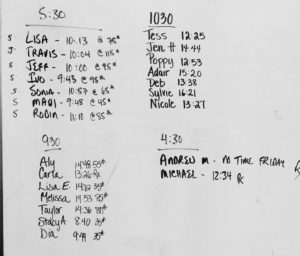 5:30
S LISA - 10:13 @ 75#
J TRAVIS - 10:04 @ 115#
S JEFF - 10:00 @ 95#
S IVO - 9:43 @ 95#
S SONIA - 10:57 @ 65#
S MAQI - 9:48 @ 45#
S ROBIN - 11:10 @ 55#
1030
Tess 12:25
Jen H 14:44
Poppy 12:53
Adair 15:20
Deb 13:38
Sylvie 16:21
Nicole 13:27
930
Aly 14:48 55#
Carla 13:26 Rx
Lisa E. 35#
Melissa 14:53 85#
Taylor 14:36
Stacy A. 8:40 35#
Dia 9:49 35#
4:30
ANDREW M - TIME FRIDAY
MICHAEL - 12:34 Rx